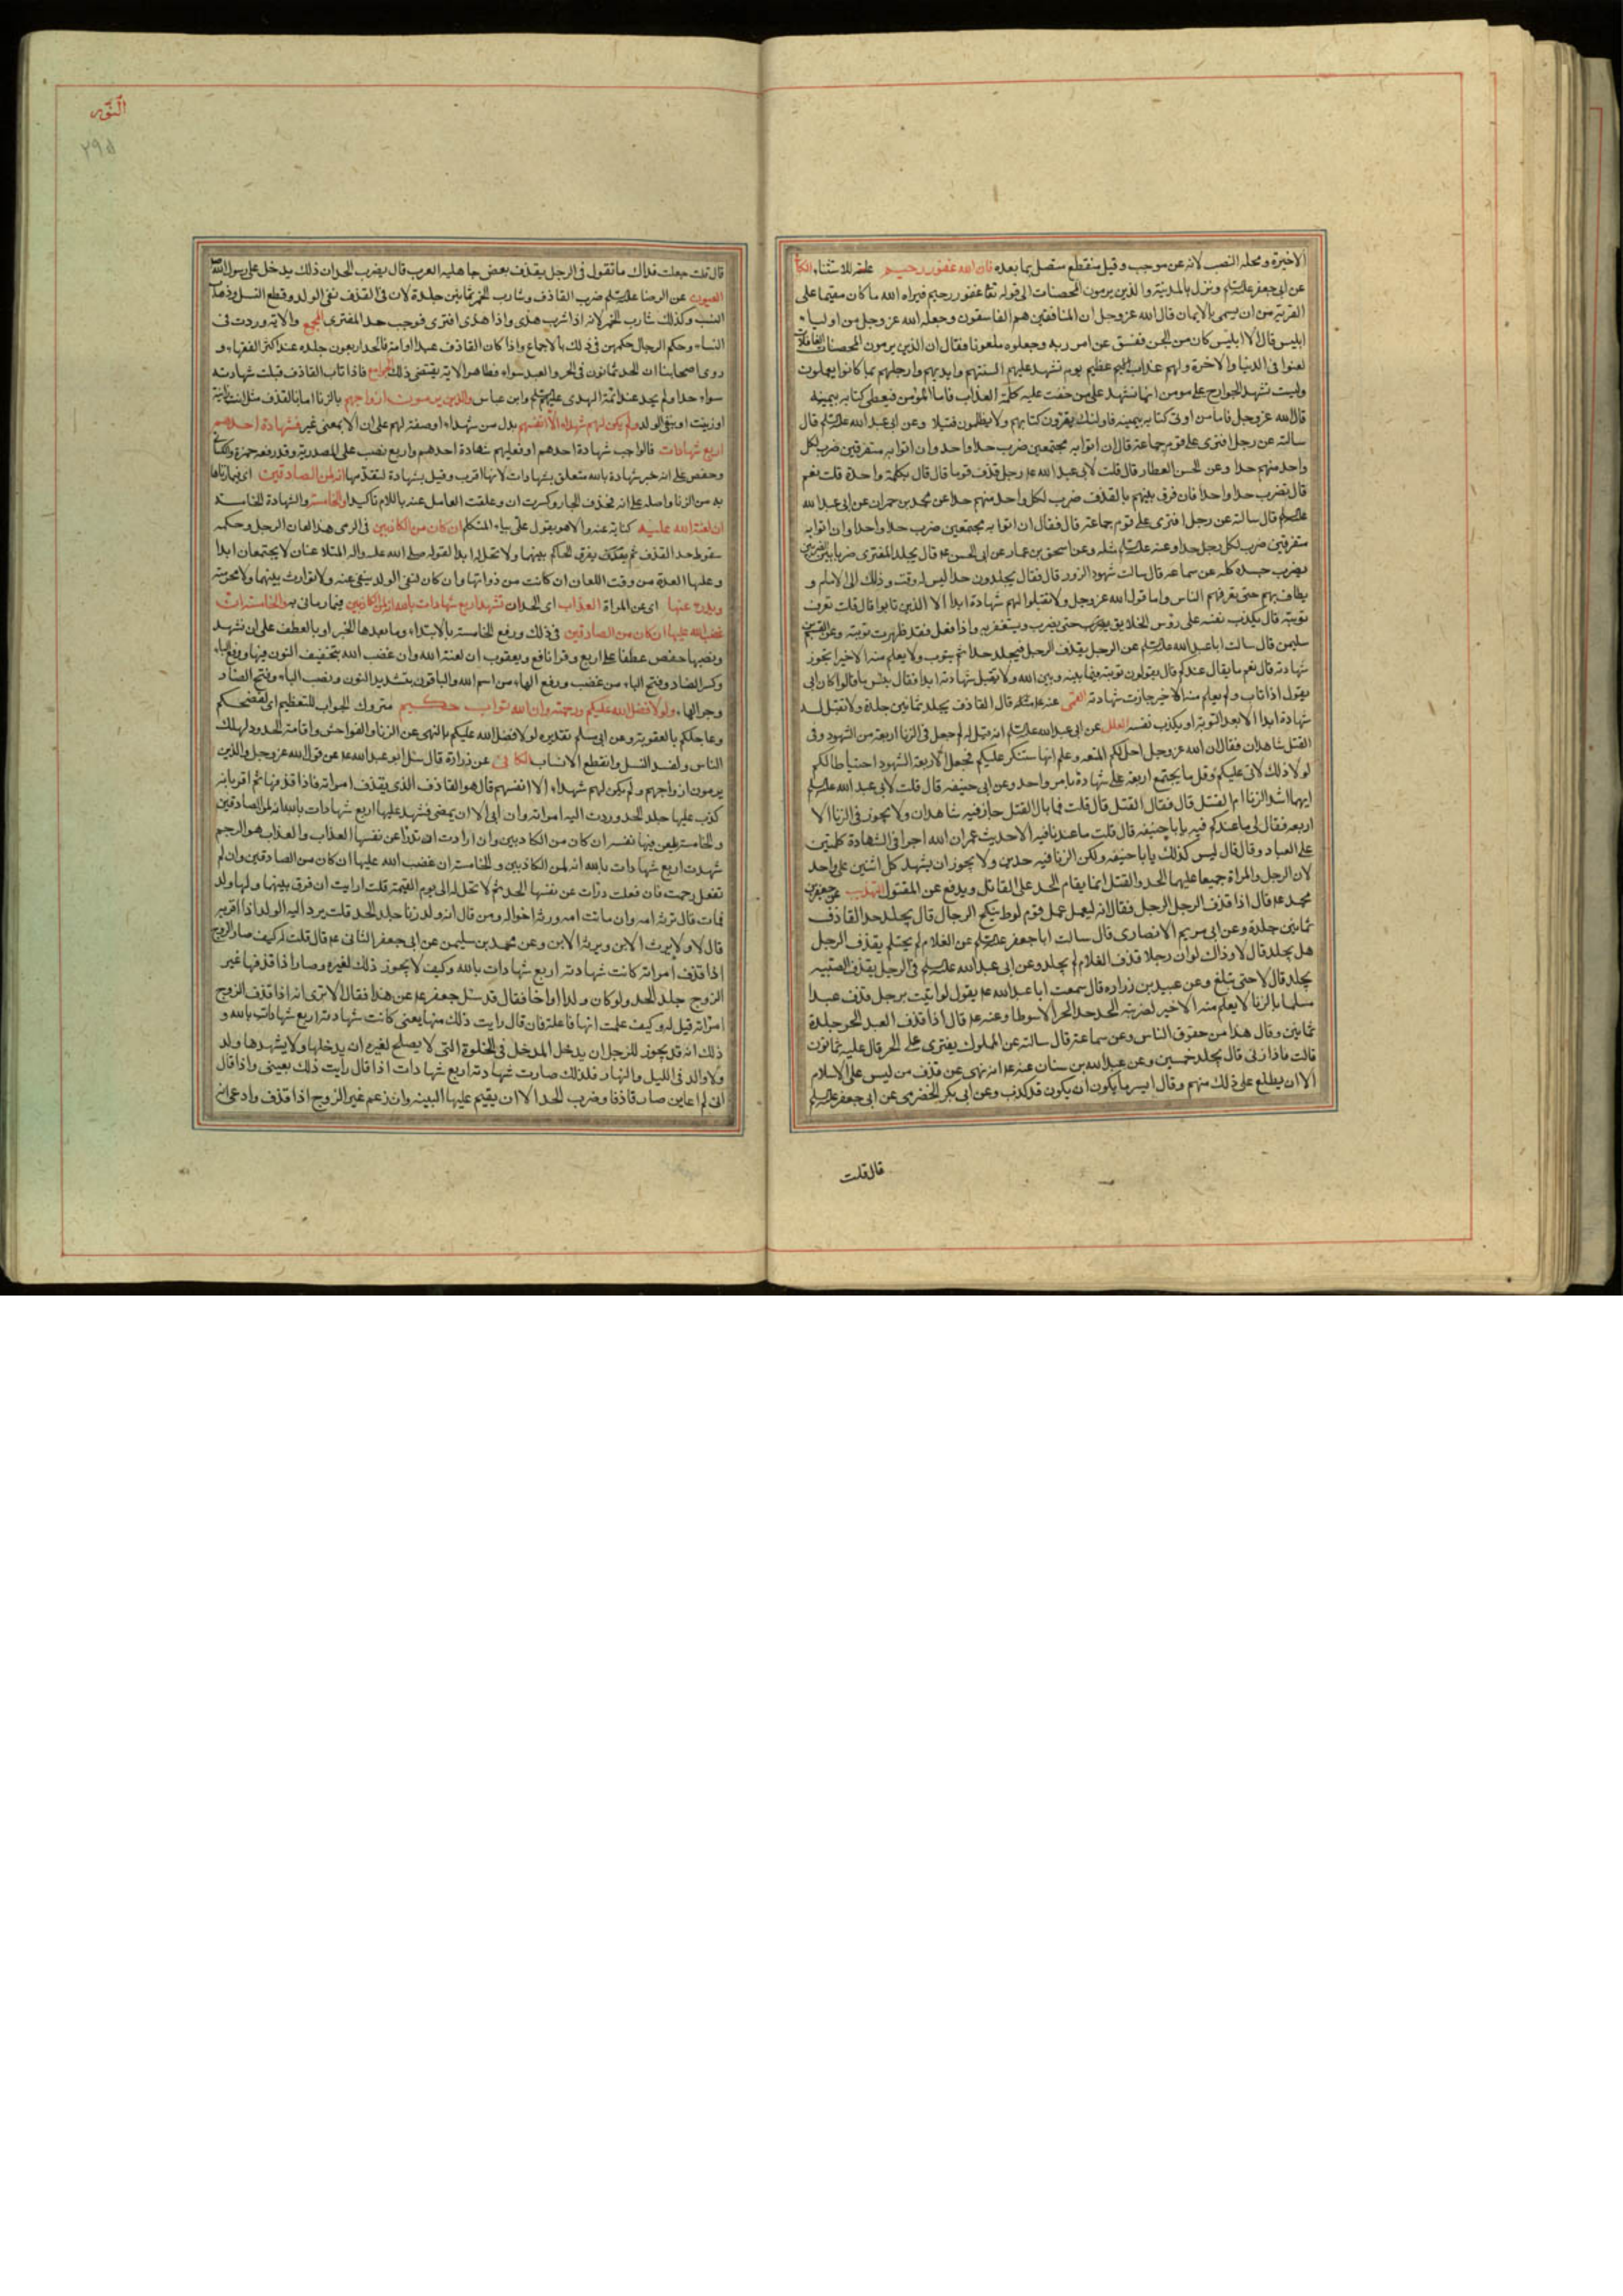 الاخيرة ومحله النصب لانه عن موجب وقيل منقطع متصل بما بعده فان الله غفور رحيم علة للاستثناء الكا
عن ابي جعفر علیه السلم ونزل بالمدينة والذين يرمون المحصنات الى قوله تعا غفور رحيم فبراه الله ما كان مقيما على
الفرية من ان يسمى بالايمان قال الله عز وجل ان المنافقين هم الفاسقون وجعله الله عز وجل من اولياء
ابليس قال الا ابليس كان من الجن ففسق عن امر ربه وجعلوه ملعونا فقال ان الذين يرمون المحصنات الغافلات
لعنوا في الدنيا والاخرة ولهم عذاب عظيم يوم تشهد عليهم السنتهم وايديهم وارجلهم بما كانوا يعملون
وليست تشهد الجوارح على مومن انما تشهد على من حقت عليه كلمة العذاب فاما المؤمن فيعطى كتابه بيمينه
قال الله عز وجل فاما من اوتى كتابه بيمينه فاولئك يقرؤن كتابهم ولا يظلمون فتيلا وعن ابي عبد الله علیه السلم قال
سالته عن رجل افترى على قوم جماعة قال ان اتوا به مجتمعين ضرب حدا واحدا وان اتوا به متفرقين ضرب لكل
واحد منهم حدا وعن الحسن العطار قال قلت لابي عبد الله ع رجل قذف قوما قال قال بكلمة واحدة قلت نعم
قال يضرب حدا واحدا فان فرق بينهم بالقذف ضرب لكل واحد منهم حدا عن محمد بن حمران عن ابي عبد الله
علیه السلم قال سالته عن رجل افترى على قوم جماعة قال فقال ان اتوا به مجتمعين ضرب حدا واحدا وان اتوا به
متفرقين ضرب لكل رجل حدا وعنه علیه السلم مثله وعن اسحق بن عمار عن ابي الحسن ع قال يجلد المفترى ضربا بين الضربين
يضرب جسده كله عن سماعة قال سالت شهود الزور قال فقال يجلدون حدا ليس له وقت وذلك الى الامام و
يطاف بهم حتى يعرفهم الناس واما قول الله عز وجل ولا تقبلوا لهم شهادة ابدا الا الذين تابوا قال قلت تعرف
توبته قال يكذب نفسه على رؤس الخلايق حتى يضرب ويستغفر ربه واذا فعل فقد ظهرت توبته وعن القسم بن
سليمن قال سالت ابا عبد الله علیه السلم عن الرجل يقذف الرجل فيجلد حدا ثم يتوب ولا يعلم منه الا خيرا يجوز
شهادته قال نعم ما يقال عندكم قال يقولون توبته فيما بينه وبين الله ولا تقبل شهادته ابدا فقال بئس ما قالوا كان ابي
يقول اذا تاب ولم يعلم منه الا خير جازت شهادته القمى عنه ع مثله قال القاذف يجلد ثمانين جلدة ولا تقبل له
شهادة ابدا الا بعد التوبة او يكذب نفسه العلل عن ابي عبد الله علیه السلم انه قيل له لم جعل في الزنا اربعة من الشهود وفى
القتل شاهدان فقال ان الله عز وجل احل لكم المتعه وعلم انها ستنكر عليكم فجعل الاربعة الشهود احتياطا لكم
لولا ذلك لاتى عليكم وقل ما يجتمع اربعة على شهادة بامر واحد وعن ابي حنيفه قال قلت لابي عبد الله علیه السلم
ايهما اشد الزنا ام القتل قال فقال القتل قال قلت فما بال القتل جاز فيه شاهدان ولا يجوز في الزنا الا
اربعه فقال لى ما عندكم فيه يا ابا حنيفه قال قلت ما عندنا فيه الا حديث عمر ان الله اجرا في الشهادة كلمتين
على العباد وقال قال ليس كذلك يا ابا حنيفه ولكن الزنا فيه حدين ولا يجوز ان يشهد كل اثنين على واحد
لان الرجل والمراة جميعا عليهما الحد والقتل انما يقام الحد على القاتل ويدفع عن المقتول التهذيب عن جعفر بن
محمد ع قال اذا قذف الرجل الرجل فقال انه ليعمل عمل قوم لوط ينكح الرجال قال يجلد حد القاذف
ثمانين جلدة وعن ابي مريم الانصارى قال سالت ابا جعفر علیه السلم عن الغلام لم يحتلم يقذف الرجل
هل يجلد قال لا وذاك لو ان رجلا قذف الغلام لم يجلد وعن ابي عبد الله علیه السلم في الرجل يقذف الصبيه
يجلد قال لا حتى تبلغ وعن عبيد بن زراره قال سمعت ابا عبد الله ع يقول لو اتيت برجل قذف عبدا
مسلما بالزنا لا يعلم منه الا خير لضربته الحد حد الحر الا سوطا وعنه ع قال اذا قذف العبد الحر جلدة
ثمانين وقال هذا من حقوق الناس وعن سماعة قال سالته عن المملوك يفترى على الحر قال عليه ثمانون
قالت فاذا زنى قال يجلد خمسين وعن عبد الله بن سنان عنه ع انه نهى عن قذف من ليس على الاسلام
الا ان يطلع على ذلك منهم وقال ايسر ما يكون ان يكون قد كذب وعن ابي بكر الحضرمى عن ابي جعفر علیه السلم
قال قلت
النور
٢٩٥
قال قلت جعلت فداك ما تقول في الرجل يقذف بعض جاهليه العرب قال يضرب الحد ان ذلك يدخل على رسول الله
العيون عن الرضا علیه السلم ضرب القاذف وشارب الخمر ثمانين جلدة لان في القذف نفى الولد وقطع النسل وذهاب
النسب وكذلك شارب الخمر لانه اذا شرب هذى واذا هذى افترى فوجب حد المفترى المجمع والاية وردت فى
النساء وحكم الرجال حكمهن في ذلك بالاجماع واذا كان القاذف عبدا او امة فالحد اربعون جلده عند اكثر الفقهاء و
روى اصحابنا ان الحد ثمانون في الحر والعبد سواء فظاهر الاية يقتضى ذلك الجوامع فاذا تاب القاذف قبلت شهادته
سواء حد او لم يحد عند ائمة الهدى عليهم السلم وابن عباس والذين يرمون ازواجهم بالزنا اما بالقذف مثل انت زانية
او زنيت او بنفى الولد ولم يكن لهم شهداء الا انفسهم بدل من شهداء او صفة لهم على ان الا بمعنى غير فشهادة احدهم
اربع شهادات فالواجب شهادة احدهم او فعليهم شهادة احدهم واربع نصب على المصدرية وقد رفعه حمزة والكسائي
وحفص على انه خبر شهادة بالله متعلق بشهادات لانها اقرب وقيل بشهادة لتقدمها انه لمن الصادقين اى فيما رماها
به من الزنا واصله على انه فحذف الجار وكسرت ان وعلقت العامل عنه باللام تاكيدا والخامسة والشهادة الخامسة
ان لعنة الله عليه كناية عنه والا هو يقول على بياء المتكلم ان كان من الكاذبين في الرمى هذا لعان الرجل وحكمه
سقوط حد القذف ثم يفرق الحاكم بينهما ولا تحل له ابدا لقوله صلى الله عليه واله المتلاعنان لا يجتمعان ابدا
وعليها العدة من وقت اللعان ان كانت من ذواتها وان كان لنفى الولد ينفى عنه ولا توارث بينهما ولا محرمية
ويدرء عنها اى عن المراة العذاب اى الحد ان تشهد اربع شهادات بالله انه لمن الكاذبين فيما رمانى به والخامسة ان
غضب الله عليها ان كان من الصادقين في ذلك ورفع الخامسة بالابتداء وما بعدها الخبر او بالعطف على ان تشهد
ونصبها حفص عطفا على اربع وقرا نافع ويعقوب ان لعنة الله وان غضب الله بتخفيف النون فيها ورفع التاء
وكسر الضاد وفتح الباء من غضب ورفع الهاء من اسم الله والباقون بتشديد النون ونصب الباء وفتح الضاد
وجر الهاء ولولا فضل الله عليكم ورحمته وان الله تواب حكيم متروك الجواب للتعظيم اى لفضحكم
وعاجلكم بالعقوبة وعن ابي مسلم تقديره لولا فضل الله عليكم بالنهى عن الزنا والفواحش واقامة الحدود لهلك
الناس ولفسد النسل وانقطع الانساب الكافى عن زرارة قال سئل ابو عبد الله ع عن قول الله عز وجل والذين
يرمون ازواجهم ولم يكن لهم شهداء الا انفسهم قال هو القاذف الذى يقذف امراته فاذا قذفها ثم اقر بانه
كذب عليها جلد الحد وردت اليه امراته وان ابى الا ان يمضى فشهد عليها اربع شهادات بالله انه لمن الصادقين
والخامسة يلعن فيها نفسه ان كان من الكاذبين وان ارادت ان تدرا عن نفسها العذاب والعذاب هو الرجم
شهدت اربع شهادات بالله انه لمن الكاذبين والخامسة ان غضب الله عليها ان كان من الصادقين وان لم
تفعل رجمت فان فعلت درات عن نفسها الحد ثم لا تحل له الى يوم القيمة قلت ارايت ان فرق بينهما ولها ولد
فمات قال ترثه امه وان ماتت امه ورثه اخواله ومن قال انه ولد زنا جلد الحد قلت يرد اليه الولد اذا اقر به
قال لا ولا يرث الابن ويرثه الابن وعن محمد بن سليمن عن ابي جعفر الثانى ع قال قلت له كيف صار الزوج
اذا قذف امراته كانت شهادته اربع شهادات بالله وكيف لا يجوز ذلك لغيره وصار اذا قذفها غير
الزوج جلد الحد ولو كان ولدا او اخا فقال قد سئل جعفر ع عن هذا فقال الا ترى انه اذا قذف الزوج
امراته قيل له وكيف علمت انها فاعلة فان قال رايت ذلك منها بعينى كانت شهادته اربع شهادات بالله و
ذلك انه قد يجوز للرجل ان يدخل المدخل في الخلوة التى لا يصلح لغيره ان يدخلها ولا يشهدها ولد
ولا والد في الليل والنهار فلذلك صارت شهادته اربع شهادات اذا قال رايت ذلك بعينى واذا قال
انى لم اعاين صار قاذفا وضرب الحد الا ان يقيم عليها البينه وان زعم غير الزوج اذا قذف وادعى انه